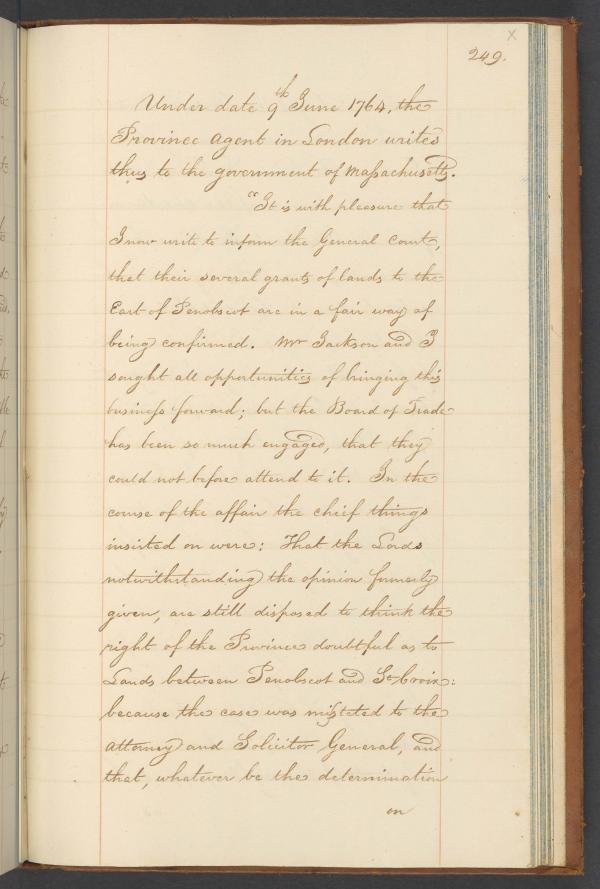 X
249.
Under date 9th June 1764, the
Province Agent in London writes
thus to the government of Massachusetts.
"It is with pleasure that
I now write to inform the General Court,
that their several grants of lands to the
East of Penobscot are in a fair way of
being confirmed. Mr Jackson and I
sought all opportunities of bringing this
business forward; but the Board of Trade
has been so much engaged, that they
could not before attend to it. In the
course of the affair the chief things
insisted on were: That the Lords
notwithstanding the opinion formerly
given, are still disposed to think the
right of the Province doubtful as to
Lands between Penobscot and St Croix:
because the case was mistated to the
Attorney and Solicitor General, and
that, whatever be the determination
on